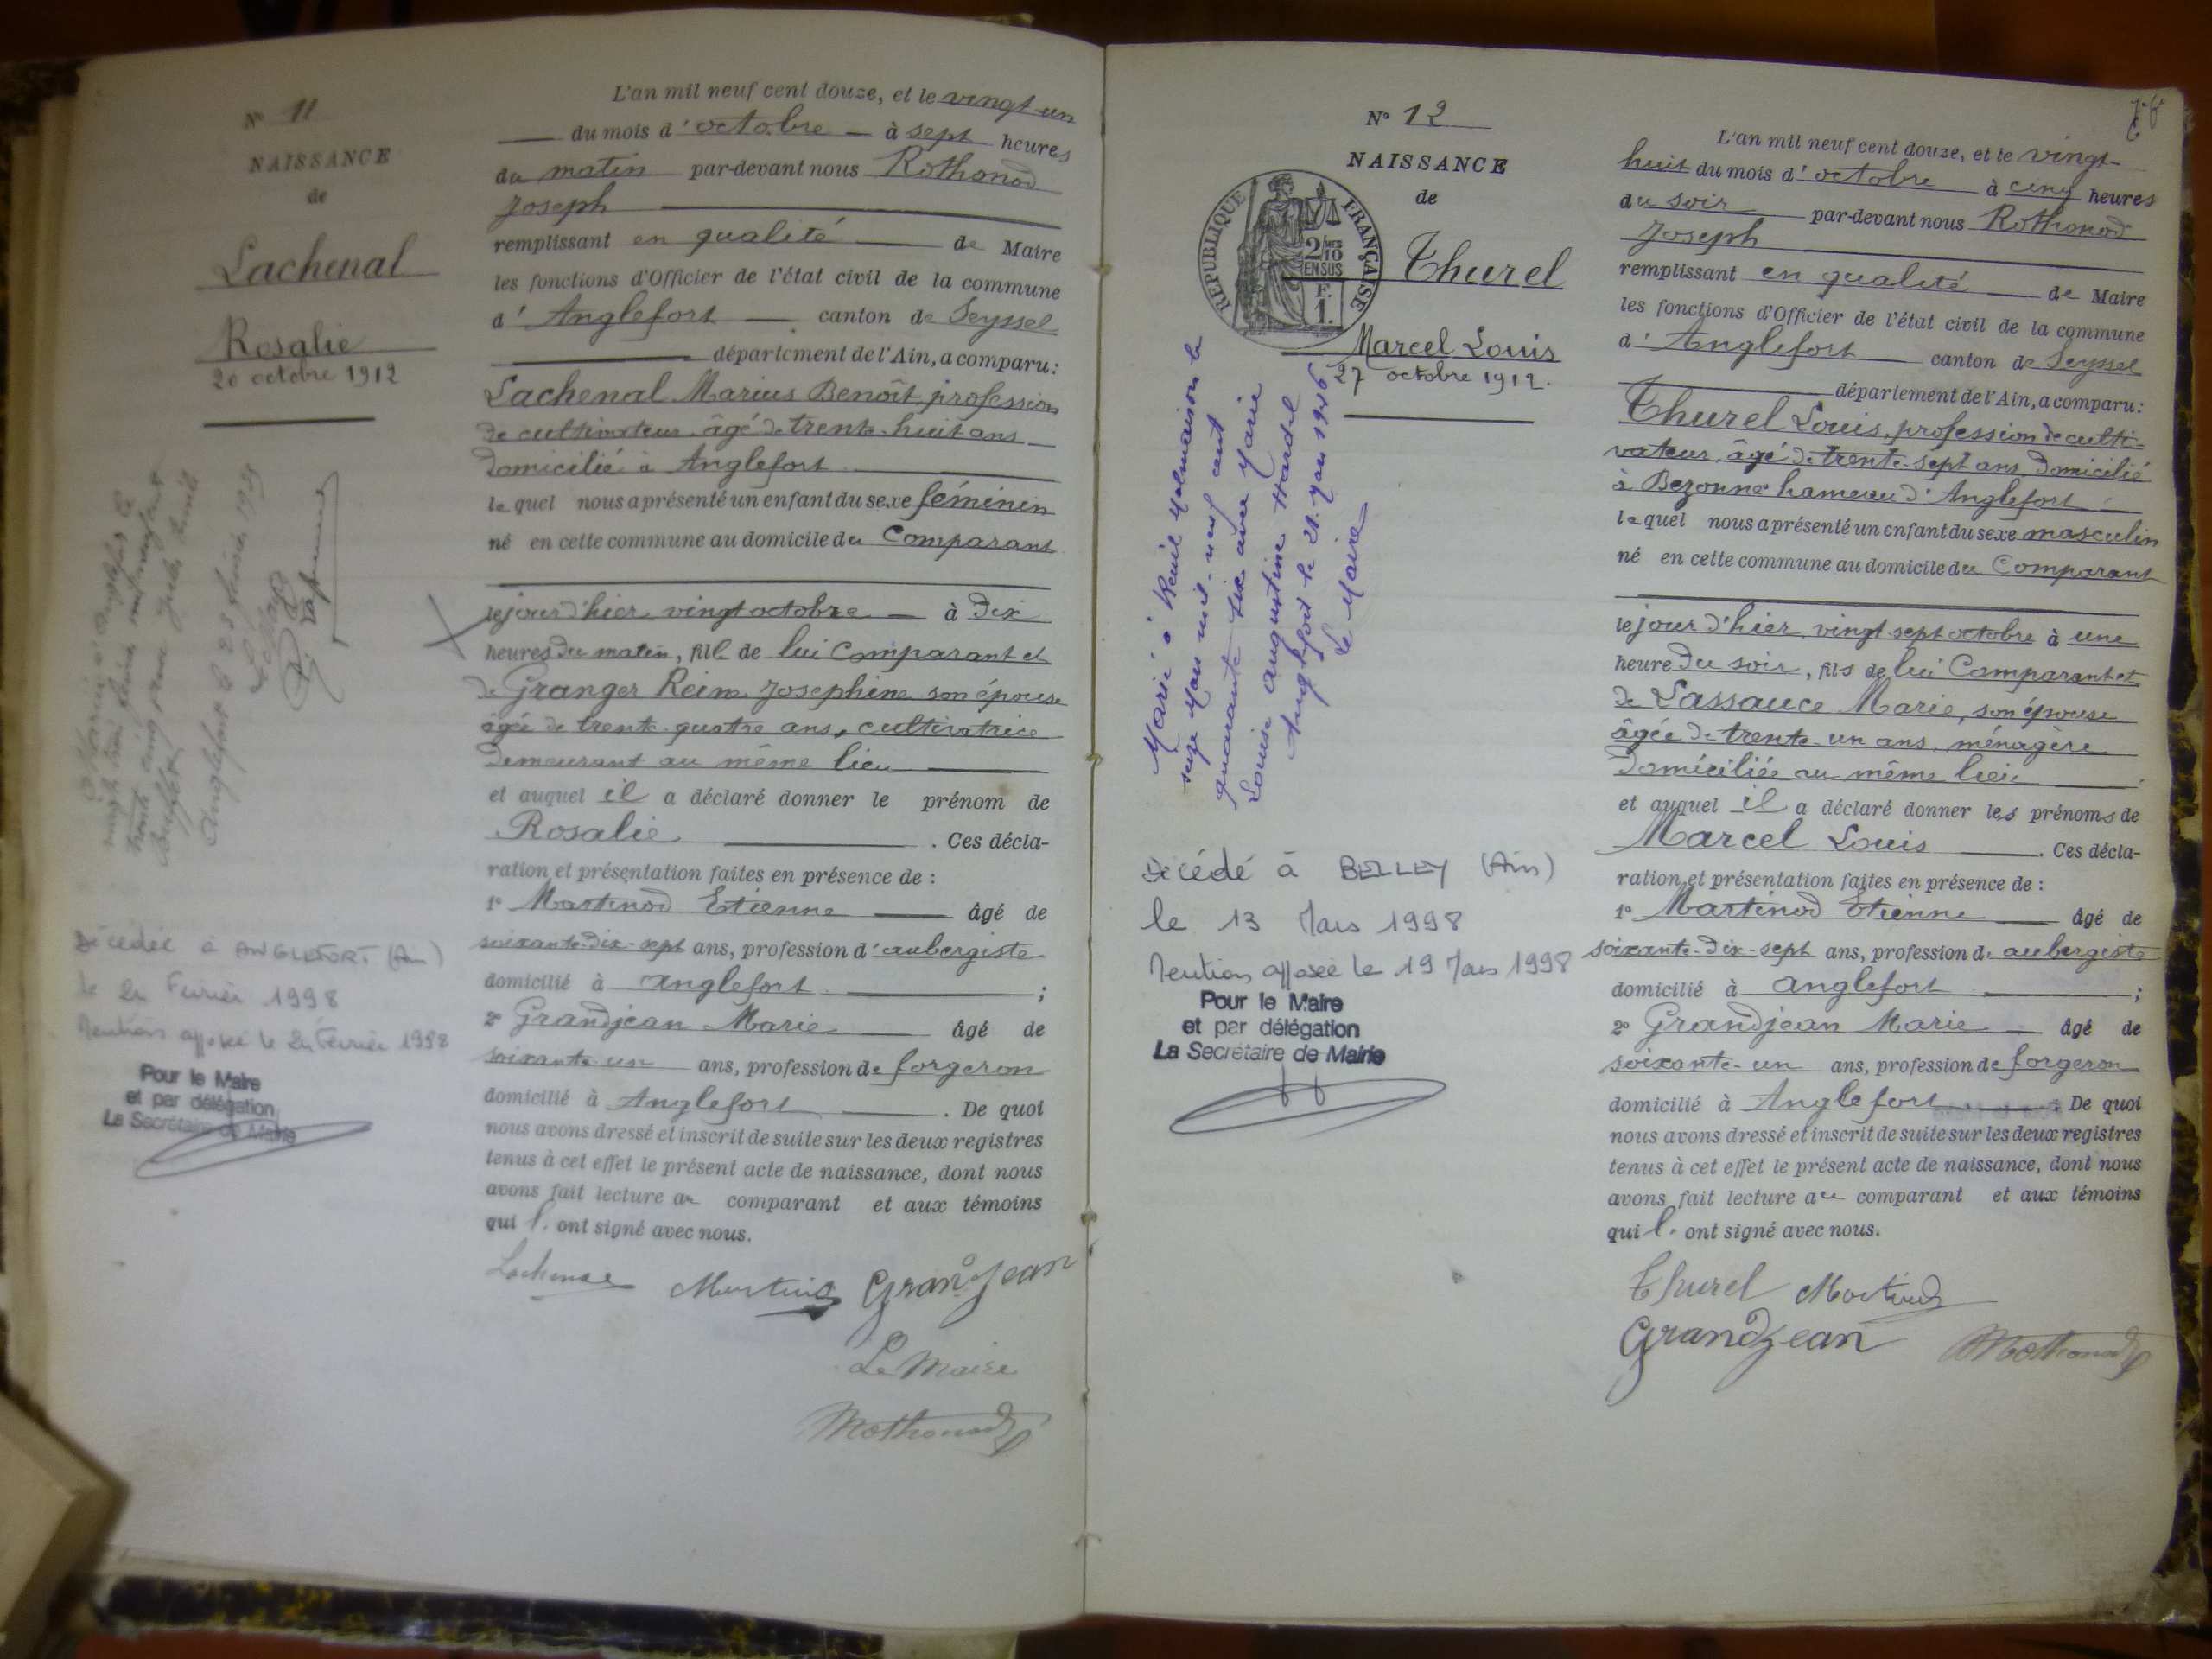 N° 11
NAISSANCE
de
Lachenal
Rosalie
20 octobre 1912
Mariée à Anglefort le
vingt trois février mil neuf cent
trente cinq avec
Anglefort le 25 février 1935
Décédée à ANGLEFORT (Ain)
le 2 Février 1998
Mention apposée le 2 Février 1998
Pour le Maire
et par délégation
La Secrétaire de Mairie
L'an mil neuf cent douze, et le vingt-un
du mois d'octobre à sept heures
du matin par-devant nous Rothonod
Joseph
remplissant en qualité de Maire
les fonctions d'Officier de l'état civil de la commune
d'Anglefort canton de Seyssel
département de l'Ain, a comparu:
Lachenal Marius Benoît, profession
de cultivateur âgé de trente-huit ans
domicilié à Anglefort
lequel nous a présenté un enfant du sexe féminin
né en cette commune au domicile du Comparant
le jour d'hier vingt octobre à dix
heures du matin, fille de lui Comparant et
de Granger Josephine son épouse
âgée de trente quatre ans, cultivatrice
demeurant au même lieu
et auquel il a déclaré donner le prénom de
Rosalie . Ces décla-
ration et présentation faites en présence de :
1° Martinod Etienne âgé de
soixante-dix-sept ans, profession d'aubergiste
domicilié à Anglefort ;
2° Grandjean Marie âgé de
soixante-un ans, profession de forgeron
domicilié à Anglefort . De quoi
nous avons dressé et inscrit de suite sur les deux registres
tenus à cet effet le présent acte de naissance, dont nous
avons fait lecture au comparant et aux témoins
qui l'ont signé avec nous.
Lachenal Martinod Grandjean
Le Maire
Rothonod
N° 12
NAISSANCE
de
REPUBLIQUE FRANÇAISE
2/10
EN SUS
F.
1.
Thurel
Marcel Louis
27 octobre 1912.
Marié à Rueil Malmaison le
seize Mars mil neuf cent
quarante six avec Marie
Louise Augustine Hardel
Anglefort le 21 Mars 1946
Le Maire
Décédé à BELLEY (Ain)
le 13 Mars 1998
Mention apposée le 19 Mars 1998
Pour le Maire
et par délégation
La Secrétaire de Mairie
L'an mil neuf cent douze, et le vingt-
huit du mois d'octobre à cinq heures
du soir par-devant nous Rothonod
Joseph
remplissant en qualité de Maire
les fonctions d'Officier de l'état civil de la commune
d'Anglefort canton de Seyssel
département de l'Ain, a comparu:
Thurel Louis, profession de culti-
vateur âgé de trente-sept ans domicilié
à Bezonne hameau d'Anglefort
lequel nous a présenté un enfant du sexe masculin
né en cette commune au domicile du Comparant
le jour d'hier, vingt sept octobre à une
heure du soir, fils de lui Comparant et
de Lassauce Marie, son épouse
âgée de trente-un ans ménagère
domiciliée au même lieu
et auquel il a déclaré donner les prénoms de
Marcel Louis . Ces décla-
ration et présentation faites en présence de :
1° Martinod Etienne âgé de
soixante-dix-sept ans, profession d'aubergiste
domicilié à Anglefort ;
2° Grandjean Marie âgé de
soixante-un ans, profession de forgeron
domicilié à Anglefort . De quoi
nous avons dressé et inscrit de suite sur les deux registres
tenus à cet effet le présent acte de naissance, dont nous
avons fait lecture au comparant et aux témoins
qui l'ont signé avec nous.
Thurel Martinod
Grandjean Rothonod